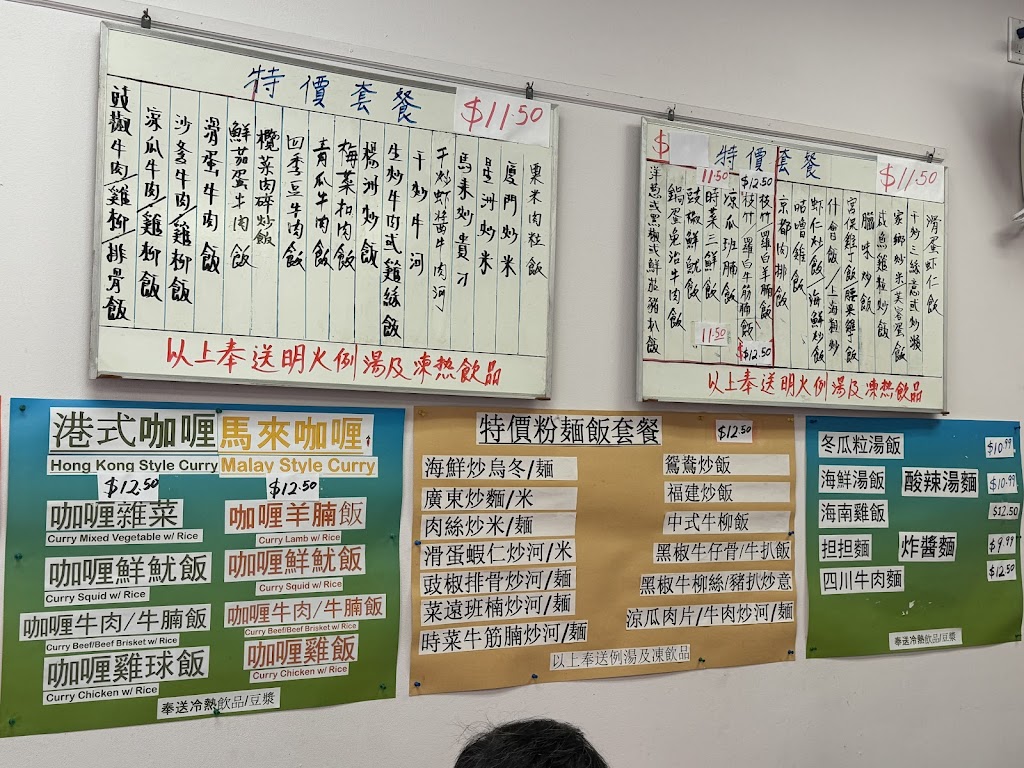 特價套餐
$11.50
粟米肉粒飯
廈門炒米
星洲炒米
馬來炒貴刁
干炒蝦醬牛肉河
干炒牛河
生炒牛肉或雞絲飯
楊洲炒飯
梅菜扣肉飯
青瓜牛肉飯
四季豆牛肉飯
欖菜肉碎炒飯
鮮茄蛋牛肉飯
滑蛋牛肉飯
沙爹牛肉/雞柳飯
涼瓜牛肉/雞柳飯
豉椒牛肉/雞柳/排骨飯
以上奉送明火例湯及凍熱飲品
$
特價套餐
$11.50
滑蛋虾仁飯
干炒三絲意或炒漿
家鄉炒米芙蓉蛋飯
咸魚雞粒炒飯
臘味炒飯
宮保雞丁飯腰果雞丁飯
什會飯/上海粗炒
虾仁炒飯/海鮮炒飯
咕嚕雞飯
京都肉排飯
$12.50
枝竹/羅白羊腩飯
枝竹/羅白牛筋腩飯
$12.50
涼瓜班腩飯
11.50
時菜三鮮飯
11.50
豉椒鮮魷飯
鍋蛋免治牛肉飯
洋葱或黑椒或鮮茄豬扒飯
以上奉送明火例湯及凍熱飲品
港式咖喱 馬來咖喱
Hong Kong Style Curry Malay Style Curry
$12.50 $12.50
咖喱雜菜 咖喱羊腩飯
Curry Mixed Vegetable w/ Rice Curry Lamb w/ Rice
咖喱鮮魷飯 咖喱鮮魷飯
Curry Squid w/ Rice Curry Squid w/ Rice
咖喱牛肉/牛腩飯 咖喱牛肉/牛腩飯
Curry Beef/Beef Brisket w/ Rice Curry Beef/Beef Brisket w/ Rice
咖喱雞球飯 咖喱雞飯
Curry Chicken w/ Rice Curry Chicken w/ Rice
奉送冷熱飲品/豆漿
特價粉麵飯套餐 $12.50
海鮮炒烏冬/麵 鴛鴦炒飯
廣東炒麵/米 福建炒飯
肉絲炒米/麵 中式牛柳飯
滑蛋蝦仁炒河/米 黑椒牛仔骨/牛扒飯
豉椒排骨炒河/麵 黑椒牛柳絲/豬扒炒意
菜遠班楠炒河/麵 涼瓜肉片/牛肉炒河/麵
時菜牛筋腩炒河/麵
以上奉送例湯及凍飲品
冬瓜粒湯飯 $10.99
海鮮湯飯 酸辣湯麵 $10.99
海南雞飯 $12.50
担担麵 炸醬麵 $9.99
四川牛肉麵 $12.50
奉送冷熱飲品/豆漿